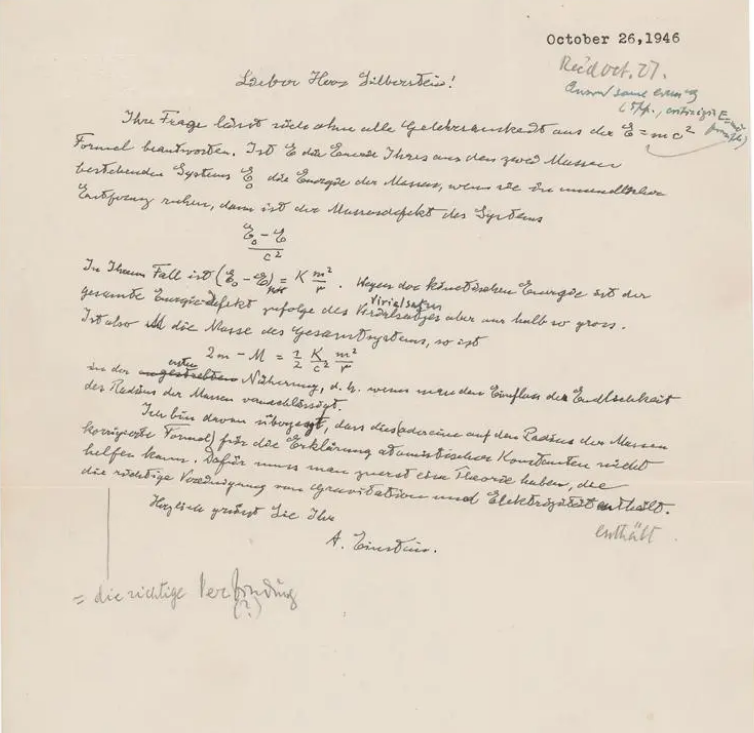 October 26,1946
Rec'd Oct. 27.
Lieber Herr Silberstein!
Ihre Frage lässt sich ohne alle Gelehrsamkeit aus der E = mc²
Formel beantworten. Ist E die Energie Ihres aus den zwei Massen
bestehenden Systems E₀ die Energie der Massen, wenn sie in unendlicher
Entfernung ruhen, dann ist der Massendefekt des Systems
E₀ – E
c²
In Ihrem Fall ist (E₀ – E) = K m²/r . Wegen der kinetischen Energie ist der
gesamte Energie-Defekt zufolge des Virialsatzes aber nur halb so gross.
Virialsatzes
Ist also M die Masse des Gesamtsystems, so ist
2m – M = 1/2 K/c² m²/r
in der ersten Näherung, d. h. wenn man den Einfluss der Endlichkeit
des Radius der Massen vernachlässigt.
Ich bin davon überzeugt, dass dies (oder eine auf den Radius der Massen
korrigierte Formel) für die Erklärung atomistischer Konstanten nicht
helfen kann. Dafür muss man zuerst eine Theorie haben, die
die richtige Vereinigung von Gravitation und Elektrizität enthält.
enthält
Herzlich grüsst Sie Ihr
A. Einstein.
= die richtige Verbindung
(?)